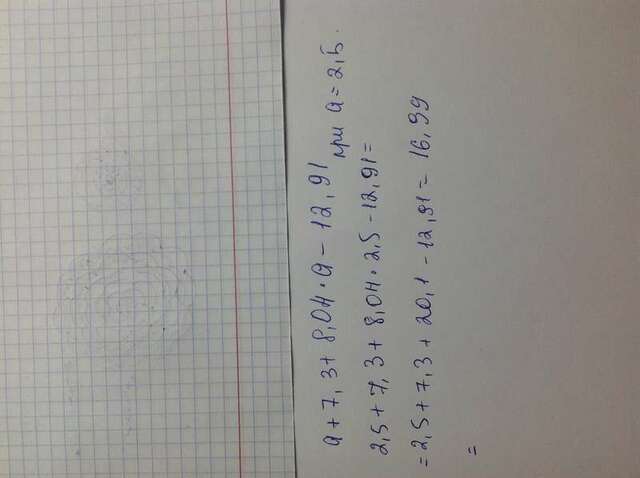 a + 7,3 + 8,04 · a - 12,91 при a = 2,5.
2,5 + 7,3 + 8,04 · 2,5 - 12,91 =
= 2,5 + 7,3 + 20,1 - 12,91 = 16,99
=